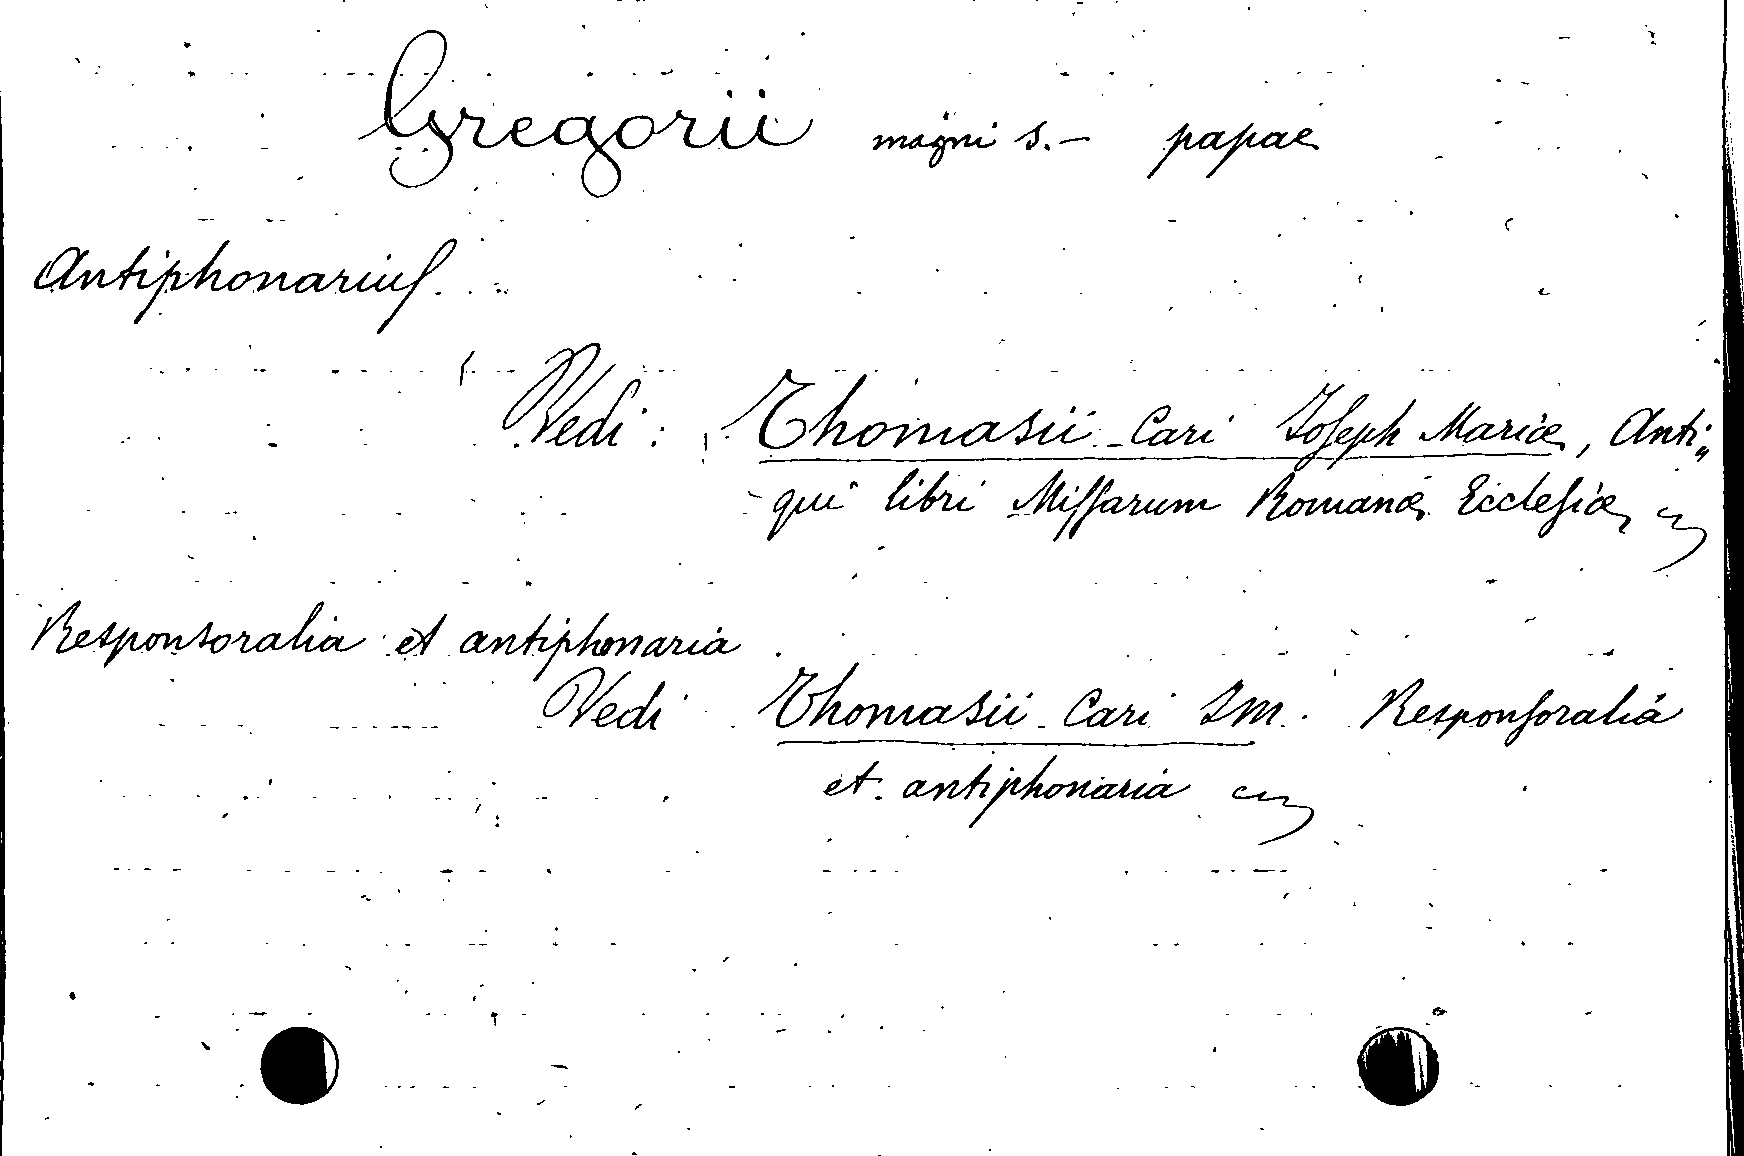 Gregorii magni S. - papae
Antiphonariuſ.
Vedi: Thomasii Cari Joſeph Mariæ, Anti„
qui libri Miſſarum Romanæ Eccleſiæ
Responsoralia et antiphonaria
Vedi Thomasii Cari J M. Responſoralia
et antiphonaria